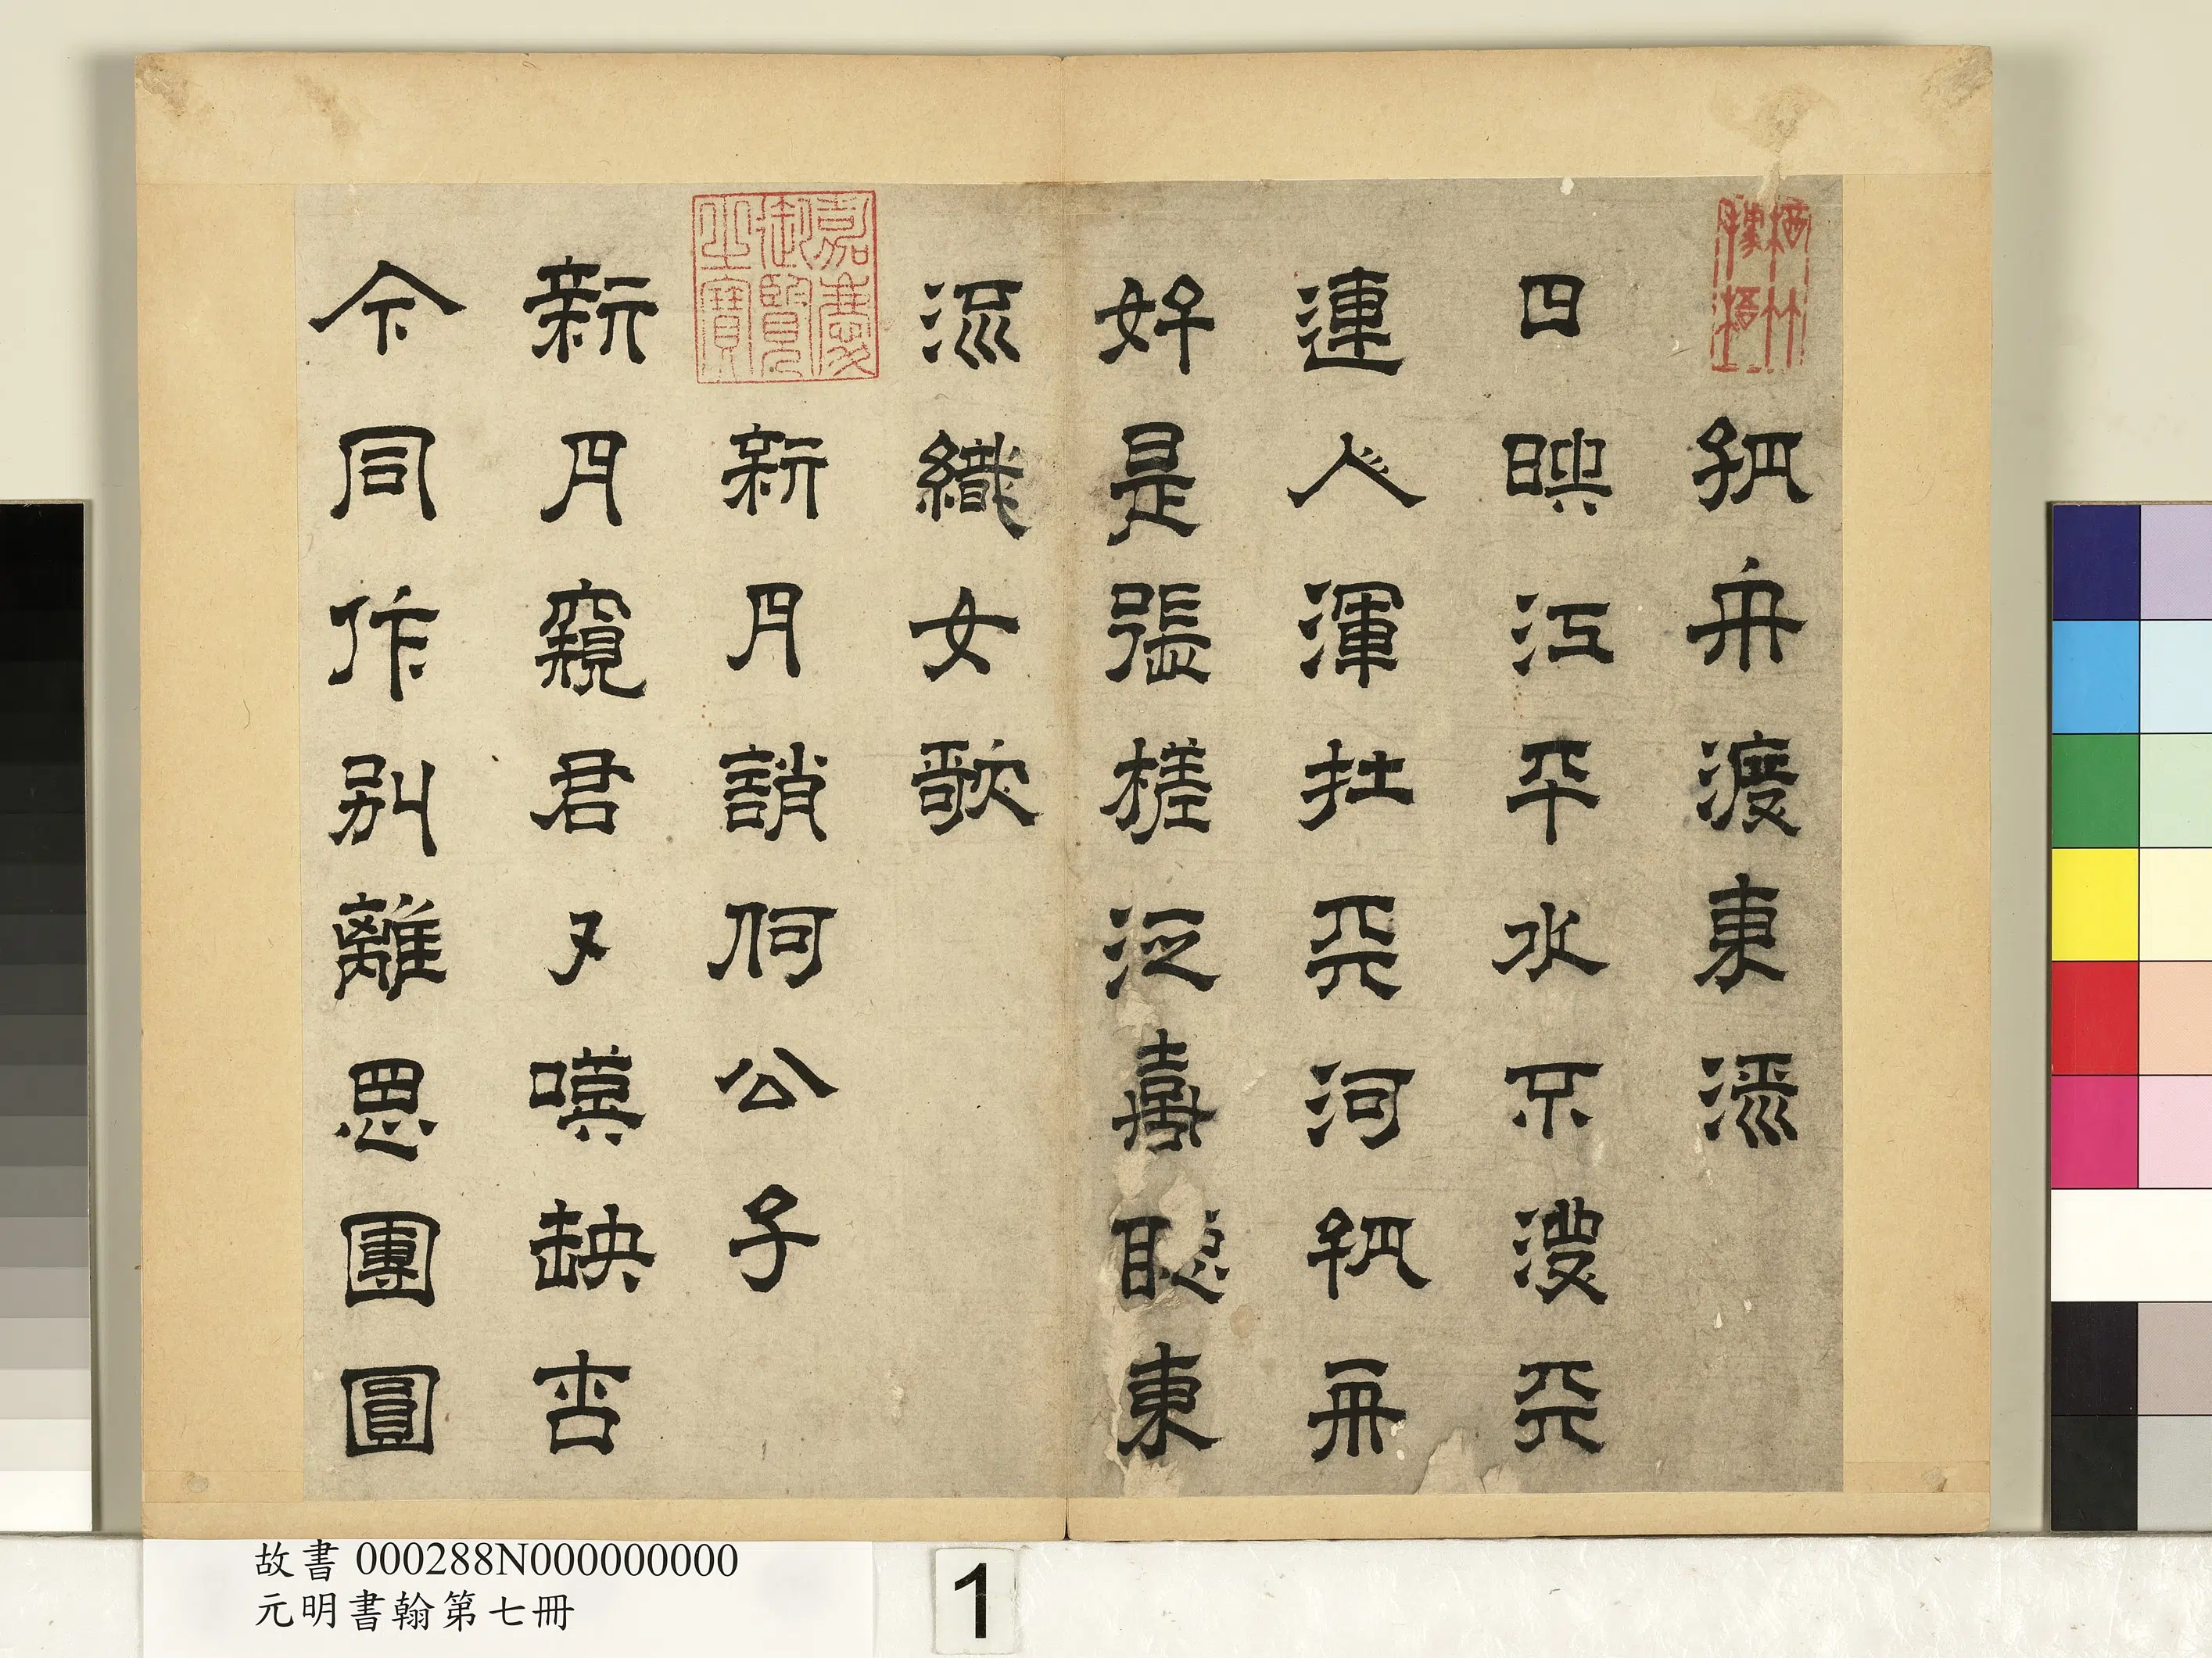 孤舟渡東流
日映江平水不波天
連人渾在天河孤舟
好是張槎泛喜聽東
流織女歌
嘉慶御覽之寶
新月誚何公子
新月窺君又嘆缺
今同作別離思團圓
故書 000288N000000000
元明書翰第七冊
1